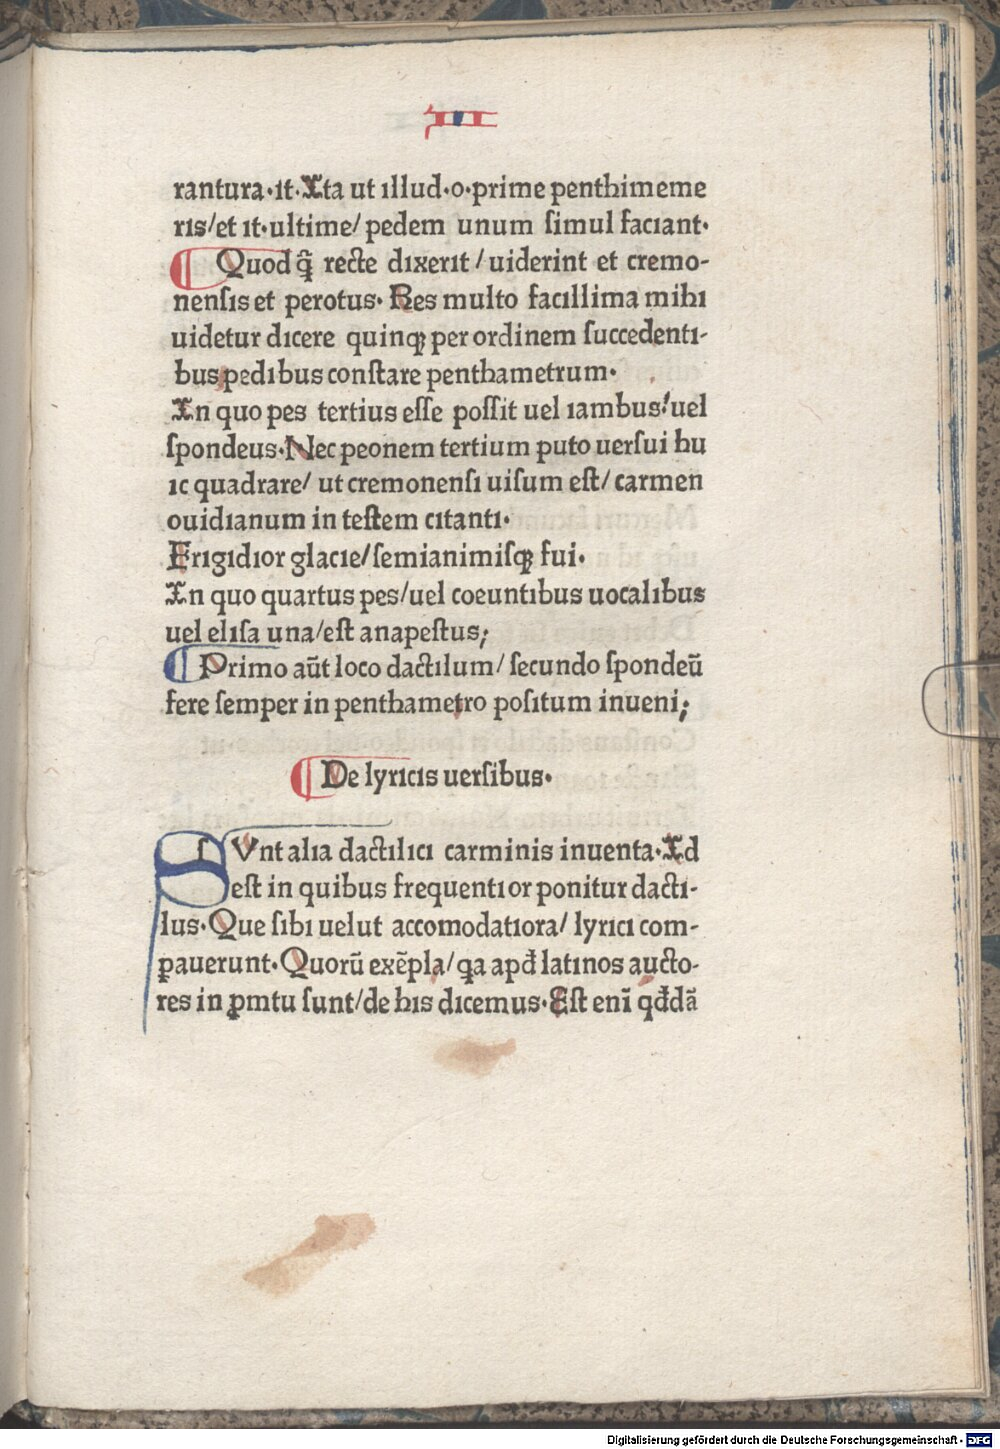 III
rantura·it·Ita ut illud·o·prime penthimeme
ris/et it·ultime/ pedem unum simul faciant·
¶ Quod q̃ recte dixerit / uiderint et cremo-
nensis et perotus· Res multo facillima mihi
uidetur dicere quinqꝫ per ordinem succedenti-
bus pedibus constare penthametrum·
In quo pes tertius esse possit uel iambus/uel
spondeus·Nec peonem tertium puto uersui hu
ic quadrare/ ut cremonensi uisum est/ carmen
ouidianum in testem citanti·
Frigidior glacie/semianimisqꝫ fui·
In quo quartus pes/uel coeuntibus uocalibus
uel elisa una/est anapestus;
¶ Primo aũt loco dactilum/ secundo spondeũ
fere semper in penthametro positum inueni;
¶ De lyricis uersibus·
SVnt alia dactilici carminis inuenta·Id
est in quibus frequentior ponitur dacti-
lus·Que sibi uelut accomodatiora/ lyrici com-
pauerunt·Quorũ exẽpla/qa apđ latinos aucto-
res in ꝓmtu sunt/de his dicemus·Est enĩ qđdã
Digitalisierung gefördert durch die Deutsche Forschungsgemeinschaft - DFG